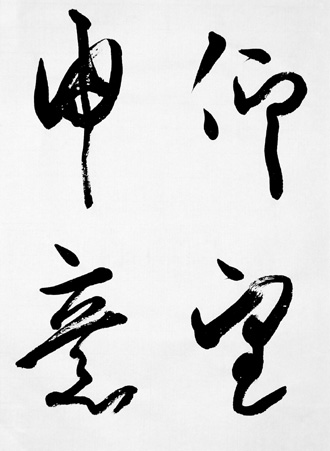 仰望
申意